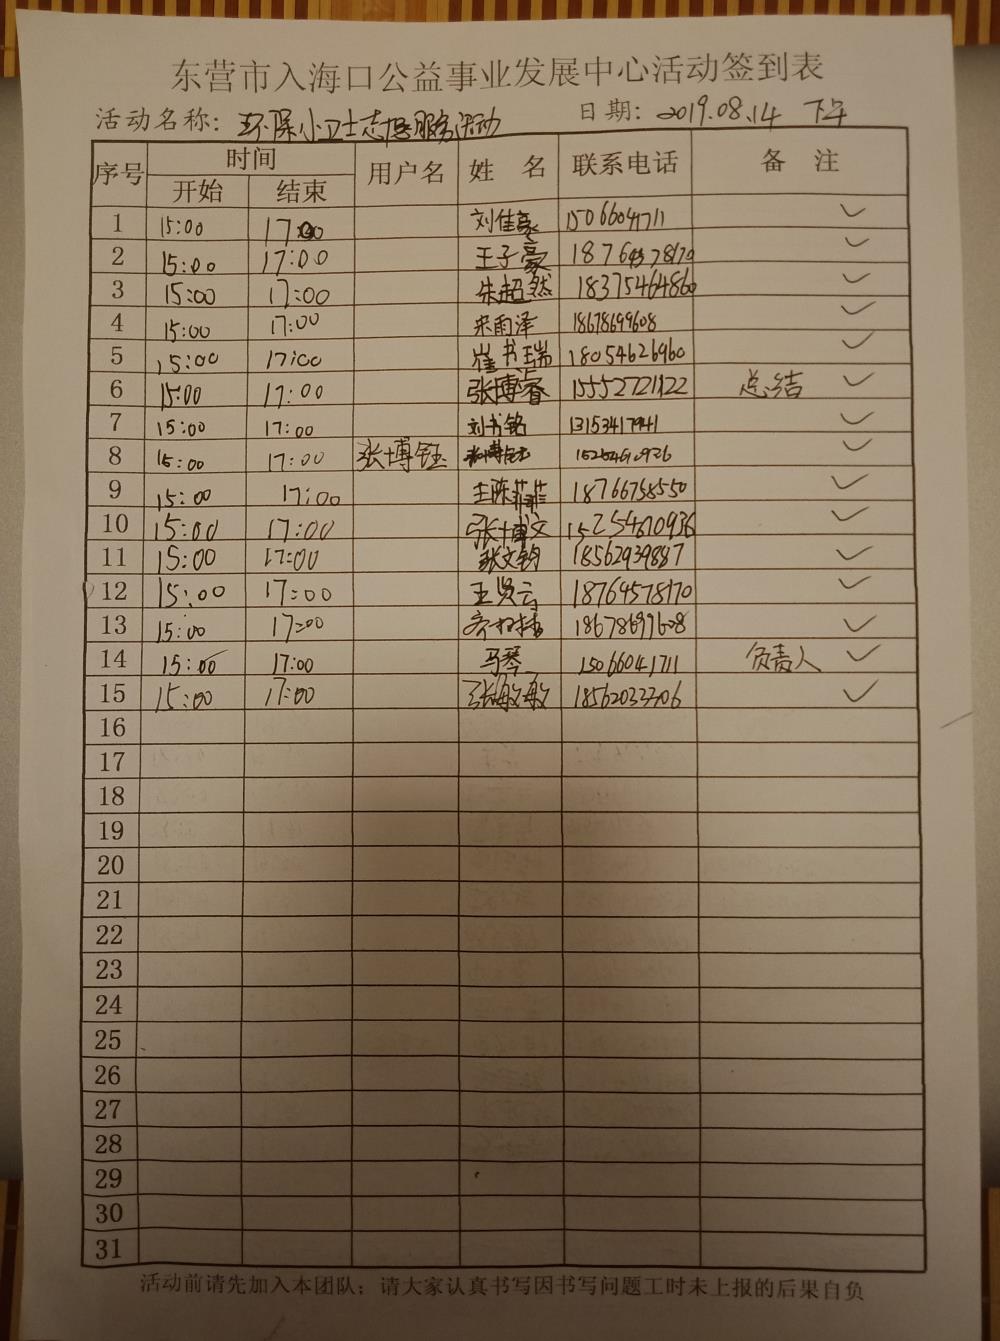 东营市入海口公益事业发展中心活动签到表
活动名称: 环保小卫士志愿服务活动 日期: 2019.08.14 下午
序号 时间 用户名 姓 名 联系电话 备 注
开始 结束
1 15:00 17:00 刘佳豪 15066041711 ✓
2 15:00 17:00 王子豪 18764578170 ✓
3 15:00 17:00 朱超然 18375464860 ✓
4 15:00 17:00 宋雨泽 18678699608 ✓
5 15:00 17:00 崔书瑞 18054626960 ✓
6 15:00 17:00 张博睿 15552721122 总结 ✓
7 15:00 17:00 刘书铭 13153417941 ✓
8 15:00 17:00 张博钰 ✓
9 15:00 17:00 王陈菲菲 18766758550 ✓
10 15:00 17:00 张博文 15254610936 ✓
11 15:00 17:00 张文钧 18562939887 ✓
12 15:00 17:00 王贤云 18764578170 ✓
13 15:00 17:00 18678699608 ✓
14 15:00 17:00 马琴 15066041711 负责人 ✓
15 15:00 17:00 张敏敏 18562033306 ✓
16
17
18
19
20
21
22
23
24
25
26
27
28
29
30
31
活动前请先加入本团队; 请大家认真书写因书写问题工时未上报的后果自负